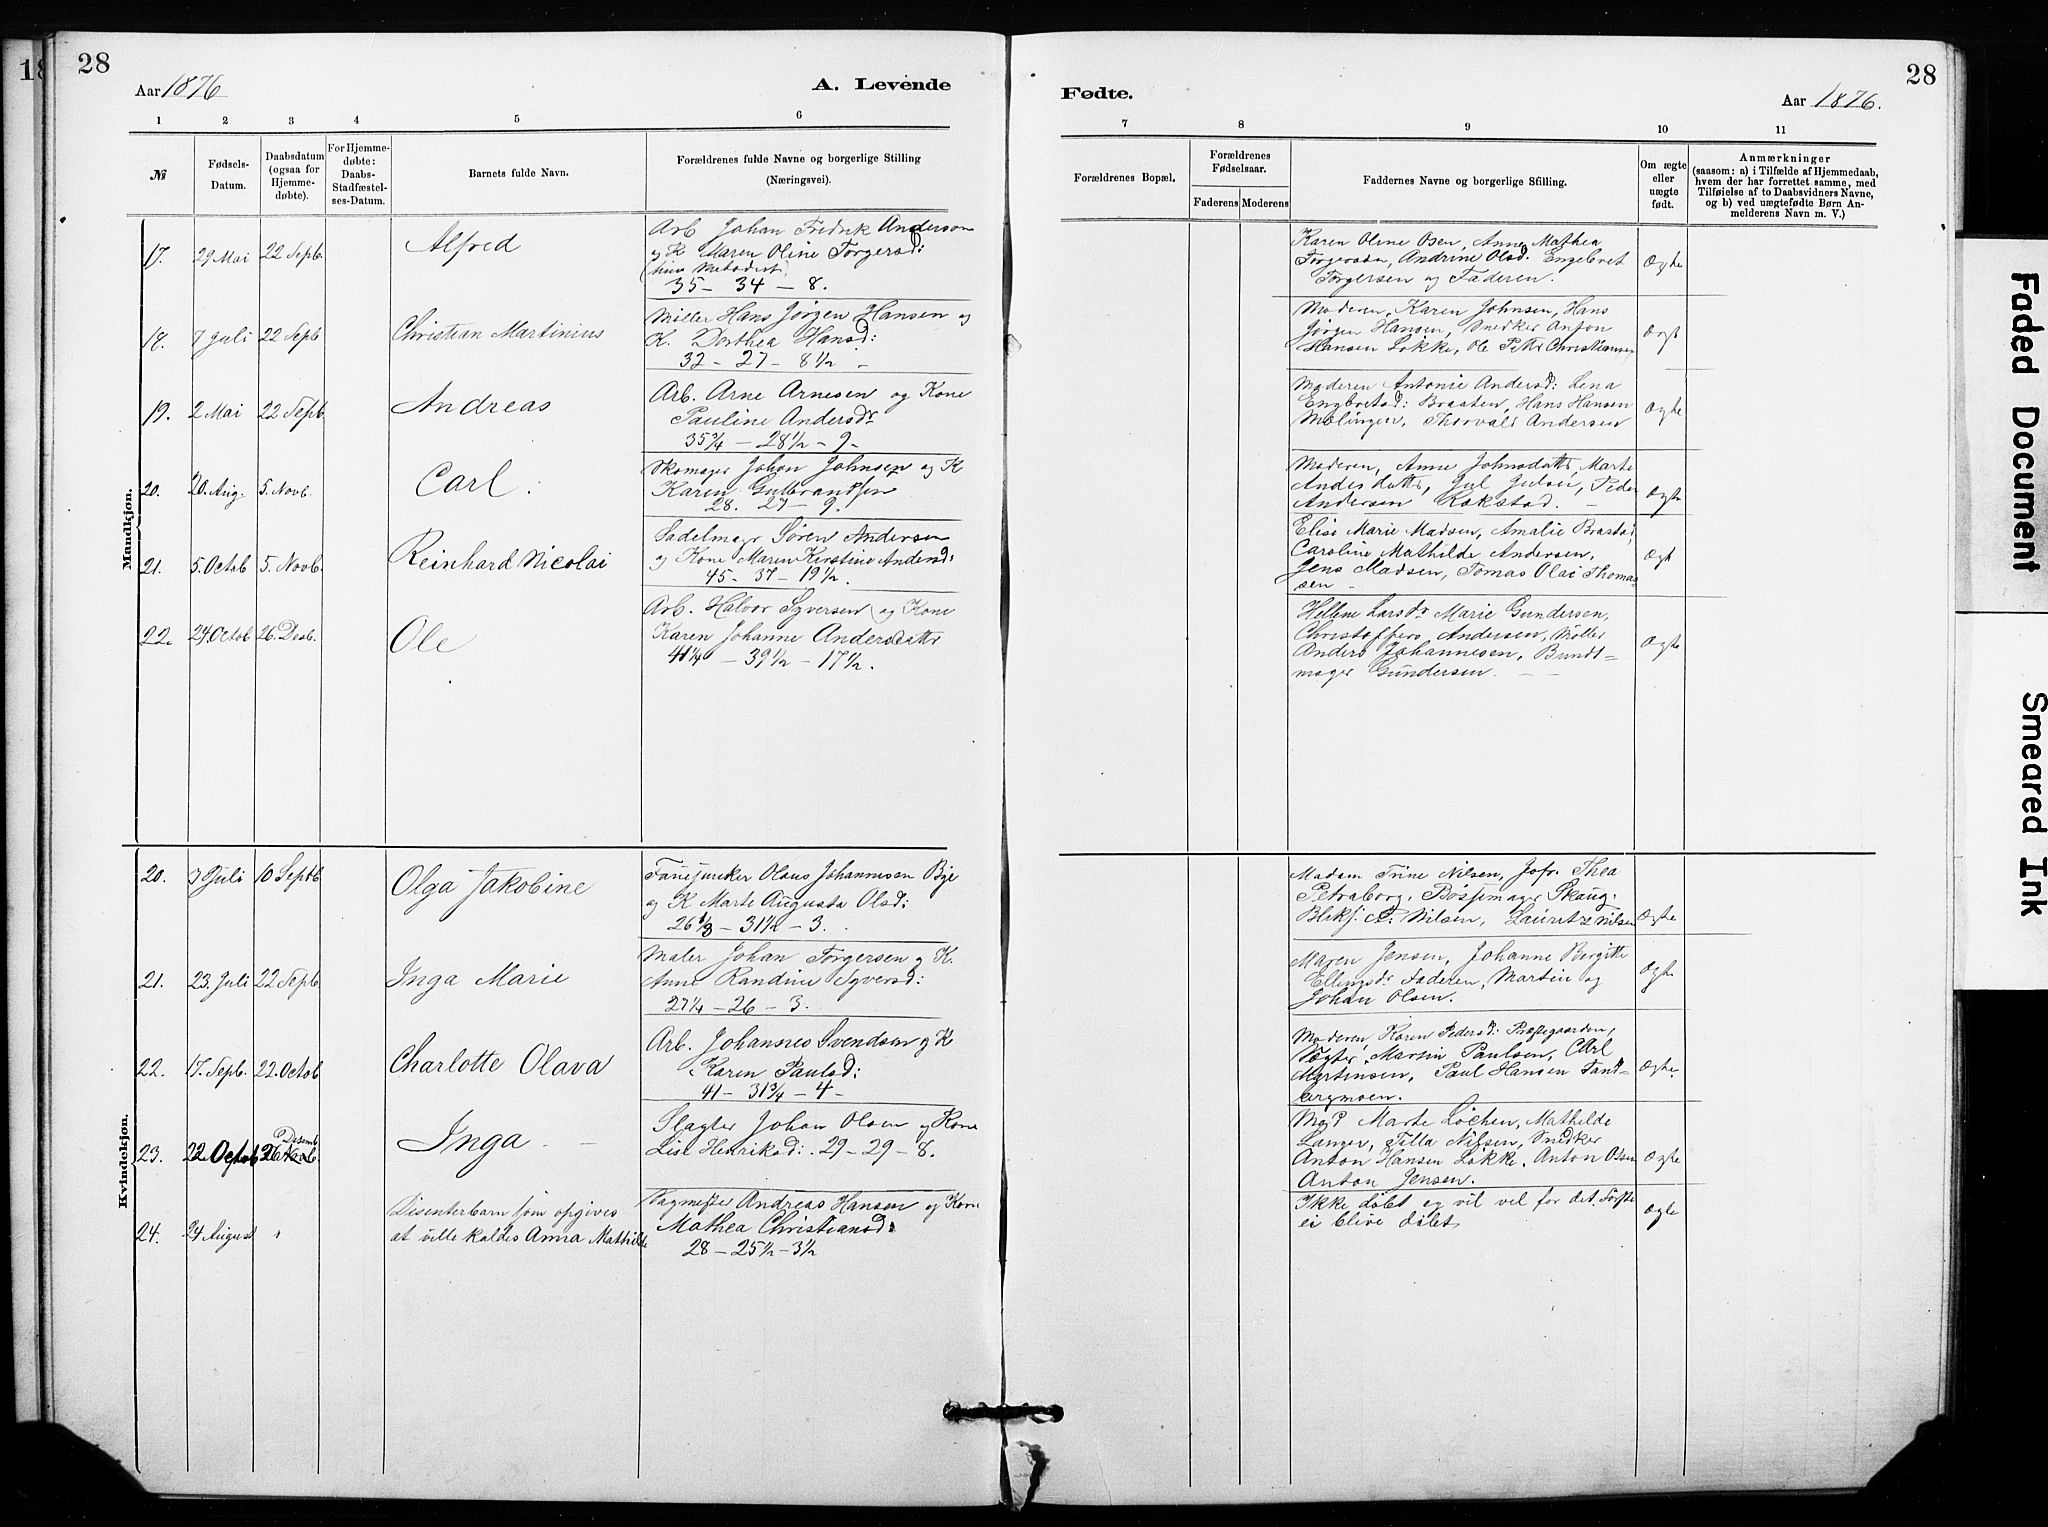 28
Aar 1876
A. Levende
Fødte.
Aar 1876.
28
1 2 3 4 5 6 7 8 9 10 11
№
Fødsels-Datum.
Daabsdatum (ogsaa for Hjemme-døbte).
For Hjemme-døbte: Daabs-Stadfæstel-ses-Datum.
Barnets fulde Navn.
Forældrenes fulde Navne og borgerlige Stilling
(Næringsvei).
Forældrenes Bopæl.
Forældrenes Fødselsaar.
Faderens Moderens
Faddernes Navne og borgerlige Stilling.
Om ægte eller uægte født.
Anmærkninger
(saasom: a) i Tilfælde af Hjemmedaab,
hvem der har forrettet samme, med
Tilføielse af to Daabsvidners Navne,
og b) ved uægtefødte Børn An-
melderens Navn m. V.)
Mandkjøn.
17. 29 Mai 22 Septb. Alfred
Arb Johan Fredrik Anderson
og K Maren Oline Torgersd:
(hun Metodist)
35 – 34 – 8.
Karen Oline Osen, Anne Mathea
Torgersen, Andrine Olsd. Engebret
Torgersen og Faderen.
Ægte
18. 7 Juli 22 Septb Christian Martinius
Miller Hans Jørgen Hansen og
K. Dorthea Hansd:
32 – 27 – 8½ –
Moderen, Karen Johnsen, Hans
Jørgen Hansen, Snedker Anton
Hansen Løkke, Ole Petter Christiansen
Ægt
19. 2 Mai 22 Septb Andreas
Arb. Arne Arnesen og Kone
Pauline Andersdr
35¾ – 28½ – 9.
Moderen Antonie Andersd: Lena
Engbretsd: Braaten, Hans Hansen
Mølingen, Thorvald Andersen
Ægte
20. 20. Aug. 5. Novb. Carl.
Skomager Johan Johnsen og K
Karen Gulbrandsen
28. 27 – 9.
Moderen, Anne Johnsdatter, Marte
Andersdatter, Jul Julsen, Peder
Andersen Rokstad. –
Ægte
21. 5. Octb 5. Novb. Reinhard Nicolai
Sadelmagr Søren Andersen
og Kone Maren Kirstine Andersd:
45 – 37 – 19½.
Elise Marie Madsen, Amalie Brastad,
Caroline Mathilde Andersen,
Jens Madsen, Tomas Olai Thoma
sen –
Ægt
22. 24. Octob 26. Desb. Ole
Arb. Halvor Syversen og Kone
Karen Johanne Andersdatter
41¼ – 39½ – 17½.
Hellene Larsdr Marie Gundersen,
Christoffers Andersen, Møller
Anders Johannesen, Bundt-
mager Gundersen.
Ægte
Kvindekjøn.
20. 7 Juli 10 Septb Olga Jakobine
Fanejunker Olaus Johannesen Bye
og K Marte Augusta Olsd:
26⅓ – 31½ – 3.
Madam Trine Nilsen, Jofr. Thea
Petraborg, Bøssemager Skaug.
Bleksl. A. Nilsen, Lauritz Nilsen
Ægte
21. 23. Juli 22 Septb Inga Marie
Maler Johan Torgersen og K.
Anne Randine Syversd:
27¼ – 26 – 3.
Maren Jensen, Johanne Birgitte
Ellingsdr Faderen, Martin og
Johan Olsen.
Ægte
22. 17. Septb. 22. Octob Charlotte Olava
Arb. Johannes Svendsen og K
Karen Paulsd:
41 – 31¾ – 4 –
Moderen, Karen Pedersd: Præstegaarden,
Vægter Martin Paulsen, Carl
Martinsen, Paul Hansen Sand-
bergmoen.
Ægte.
23. 22 Octob 26 Desemb Inga
Slagter Johan Olsen og Kone
Lise Henriksd: 29 – 29 – 8.
Md Marte Løchen, Mathilde
Langer, Tilla Nilsen, Snedker
Anton Hansen Løkke. Anton Olsen
Anton Jensen.
Ægte
24. 24 August " Disenterbarn som opgives
at ville kaldes Anna Mathilde
Vagmester Andreas Hansen og Kone
Mathea Christiansd:
28 – 25½ – 3½
Ikke døbt og vil vel for det Første
ei blive døbet
Ægte
Faded Document
Smeared Ink